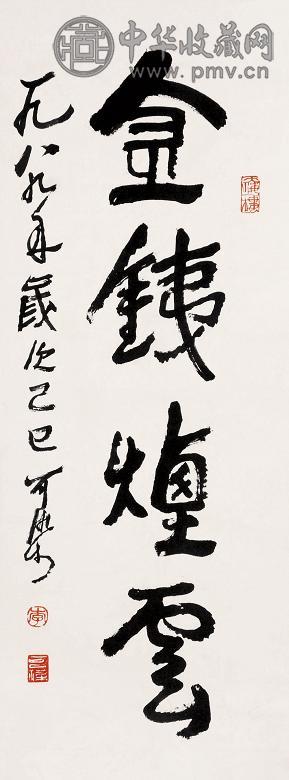 中华收藏网
www.pmv.cn
金銕煙雲
一九八九年歲次己巳可染